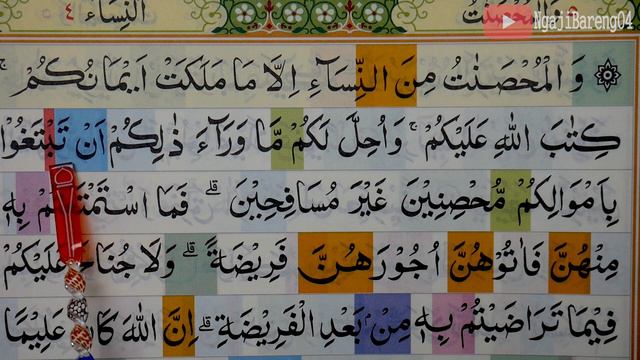 النِّسَاۤء ٤
NgajiBareng04
وَالْمُحْصَنٰتُ مِنَ النِّسَاۤءِ اِلَّا مَا مَلَكَتْ اَيْمَانُكُمْ ۚ
كِتٰبَ اللّٰهِ عَلَيْكُمْ ۚ وَاُحِلَّ لَكُمْ مَّا وَرَاۤءَ ذٰلِكُمْ اَنْ تَبْتَغُوْا
بِاَمْوَالِكُمْ مُّحْصِنِيْنَ غَيْرَ مُسَافِحِيْنَ ۗ فَمَا بِهٖ
مِنْهُنَّ فَاٰتُوْهُنَّ اُجُوْرَهُنَّ فَرِيْضَةً ۗ وَلَا عَلَيْكُمْ
فِيْمَا تَرَاضَيْتُمْ بِهٖ مِنْۢ بَعْدِ الْفَرِيْضَةِ ۗ اِنَّ اللّٰهَ كَانَ عَلِيْمًا